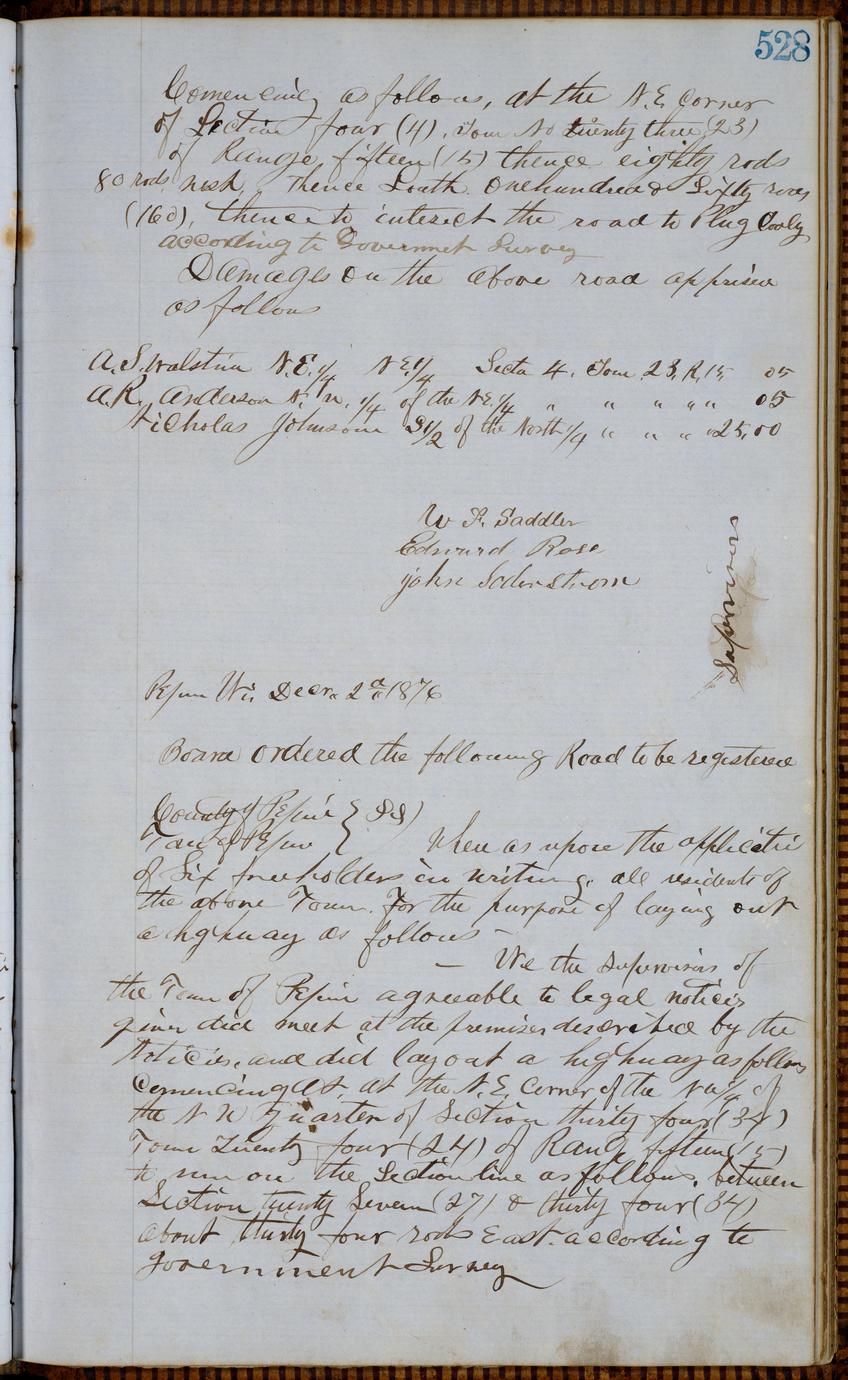 528
Comencing as follows, at the N.E. Corner
of Section four (4), Town No twenty three (23)
of Range, fifteen (15) thence eighty rods
80 rods west, Thence South onehundred & Sixty rods
(160), thence to interect the road to Plug Cooly
according to Governmet Survey
Damages on the above road apprised
as follows
A. S. Walstrin N.E. 1/4 N.E. 1/4 Secto 4. Town 23, R, 15 05
A. R. Anderson N. W. 1/4 of the N.E. 1/4 " " " " " 05
Nicholas Johnson S 1/2 of the North 1/4 " " " 25,00
W. F. Saddler
Edward Rose
john Soderstrom
Supervisors
Pepin Wis Decr. 2d 1876
Board ordered the following Road to be registered
County of Pepin } SS)
Town of Pepin }
When as upon the applicati
of Six freeholders in writing, all residents of
the above Town. For the purpose of laying out
a highway as follows —
— We the Supervisors of
the Town of Pepin agreeable to legal notices
given did meet at the premises described by the
Noticies, and did lay out a highway as follows
Comencing At, at the N.E. Corner of the NW 1/4 of
the N W Quarter of Section thirty four (34)
Town Twenty four (24) of Rang fifteen (15)
to run on the Section line as follows, between
Section twenty Seven (27) & thirty four (34)
about thirty four rods East according to
government Survey